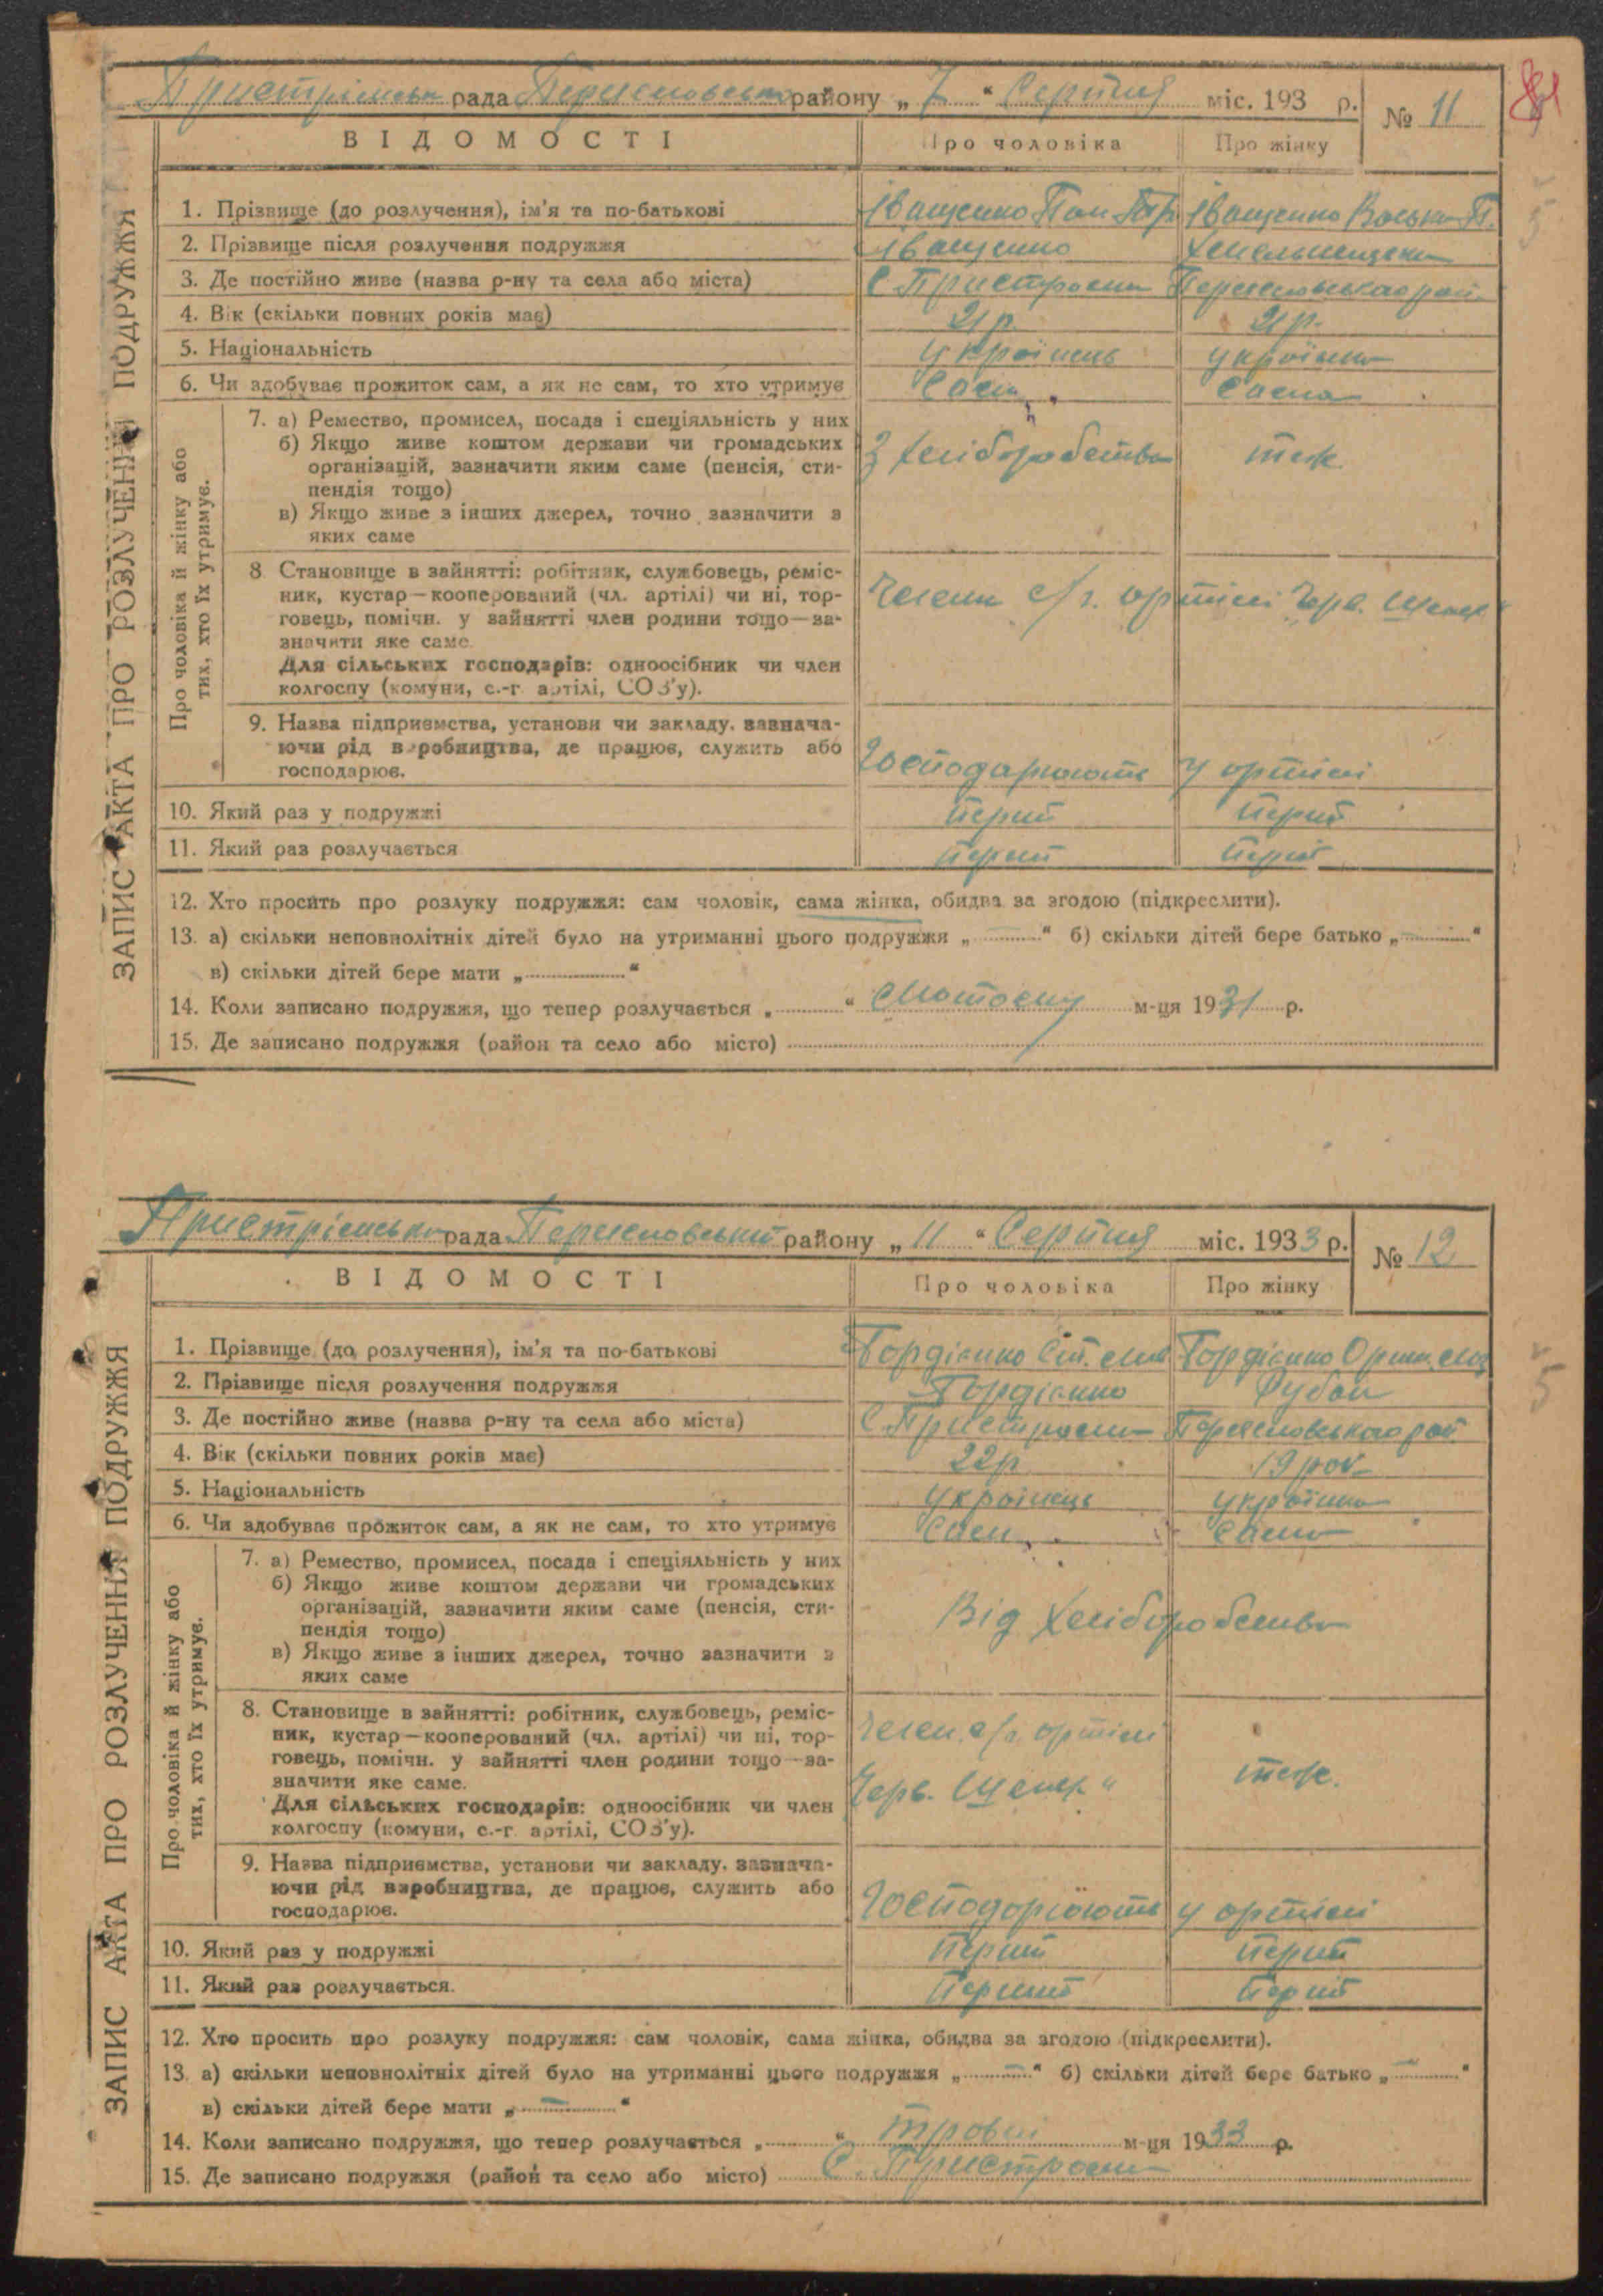 рада району „ 7 “ Серпня міс. 193 р.
№ 11
ЗАПИС АКТА ПРО РОЗЛУЧЕННЯ ПОДРУЖЖЯ
ВІДОМОСТІ
Про чоловіка
Про жінку
1. Прізвище (до розлучення), ім'я та по-батькові Іващенко Іващенко
2. Прізвище після розлучення подружжя Іващенко
3. Де постійно живе (назва р-ну та села або міста) С.
4. Вік (скільки повних років має) 21 р. 21 р.
5. Національність українець українка
6. Чи здобуває прожиток сам, а як не сам, то хто утримує Сам Сама
Про чоловіка й жінку або
тих, хто їх утримує.
7. а) Ремество, промисел, посада і спеціяльність у них
б) Якщо живе коштом держави чи громадських
організацій, зазначити яким саме (пенсія, сти-
пендія тощо)
в) Якщо живе з інших джерел, точно зазначити з
яких саме
З хліборобства теж.
8 Становище в зайнятті: робітник, службовець, реміс-
ник, кустар—кооперований (чл. артілі) чи ні, тор-
говець, помічн. у зайнятті член родини тощо—за-
значити яке саме.
Для сільських господарів: одноосібник чи член
колгоспу (комуни, с.-г. артілі, СОЗ'у).
Член с/г. артілі Черв.
9. Назва підприємства, установи чи закладу, зазнача-
ючи рід виробництва, де працює, служить або
господарює.
Господарюють у артілі
10. Який раз у подружжі перший перший
11. Який раз розлучається перший перший
12. Хто просить про розлуку подружжя: сам чоловік, сама жінка, обидва за згодою (підкреслити).
13. а) скільки неповнолітніх дітей було на утриманні цього подружжя „ — “ б) скільки дітей бере батько „ — “
в) скільки дітей бере мати „ “
14. Коли записано подружжя, що тепер розлучається „ “ м-ця 1931 р.
15. Де записано подружжя (район та село або місто)
рада району „ 11 “ Серпня міс. 1933 р.
№ 12
ЗАПИС АКТА ПРО РОЗЛУЧЕННЯ ПОДРУЖЖЯ
ВІДОМОСТІ
Про чоловіка
Про жінку
1. Прізвище (до розлучення), ім'я та по-батькові Гордієнко Гордієнко
2. Прізвище після розлучення подружжя Гордієнко
3. Де постійно живе (назва р-ну та села або міста) С.
4. Вік (скільки повних років має) 22 р 19 рок
5. Національність українець українка
6. Чи здобуває прожиток сам, а як не сам, то хто утримує Сам Сама
Про чоловіка й жінку або
тих, хто їх утримує.
7. а) Ремество, промисел, посада і спеціяльність у них
б) Якщо живе коштом держави чи громадських
організацій, зазначити яким саме (пенсія, сти-
пендія тощо)
в) Якщо живе з інших джерел, точно зазначити з
яких саме
Від хліборобства
8. Становище в зайнятті: робітник, службовець, реміс-
ник, кустар—кооперований (чл. артілі) чи ні, тор-
говець, помічн. у зайнятті член родини тощо—за-
значити яке саме.
Для сільських господарів: одноосібник чи член
колгоспу (комуни, с.-г. артілі, СОЗ'у).
Член с/г. артілі
Черв.
теж.
9. Назва підприємства, установи чи закладу, зазнача-
ючи рід виробництва, де працює, служить або
господарює.
Господорюють у артілі
10. Який раз у подружжі перший перший
11. Який раз розлучається. перший перший
12. Хто просить про розлуку подружжя: сам чоловік, сама жінка, обидва за згодою (підкреслити).
13. а) скільки неповнолітніх дітей було на утриманні цього подружжя „ — “ б) скільки дітей бере батько „ — “
в) скільки дітей бере мати „ — “
14. Коли записано подружжя, що тепер розлучається „ “ м-ця 1933 р.
15. Де записано подружжя (район та село або місто) С.